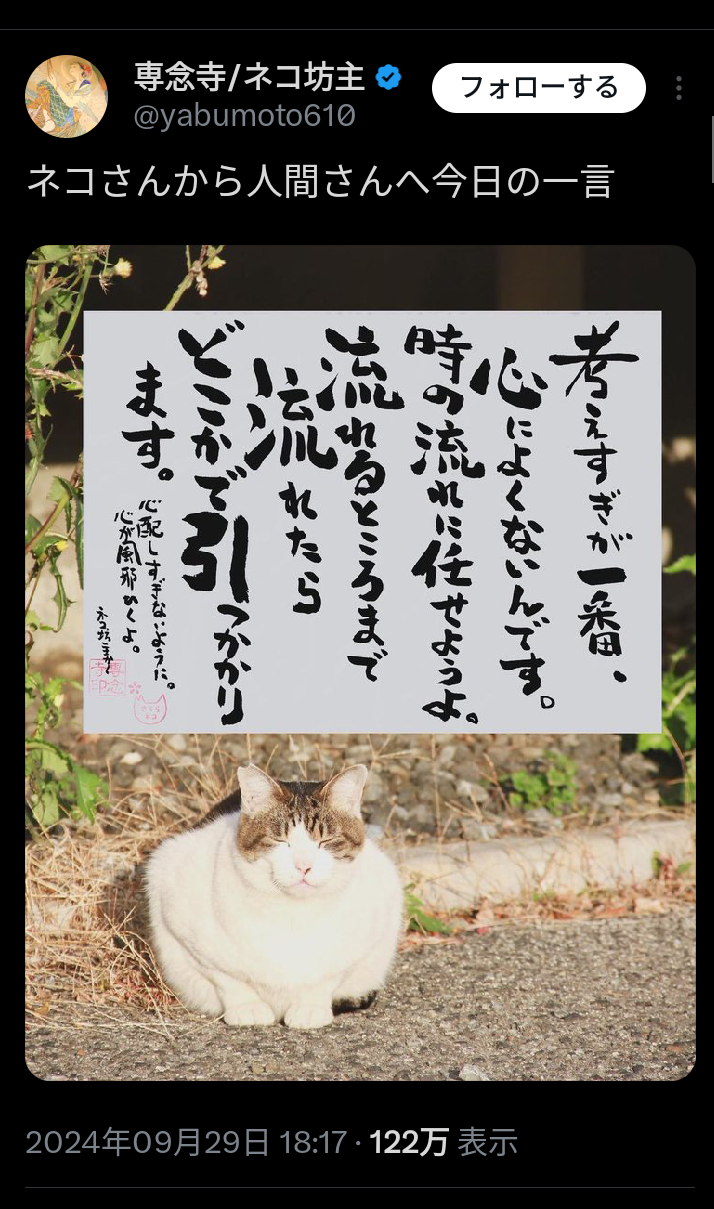 専念寺/ネコ坊主
@yabumoto610
フォローする
ネコさんから人間さんへ今日の一言
考えすぎが一番、
心によくないんです。
時の流れに任せようよ。
流れるところまで
流れたら
どこかで引っかかり
ます。
心配しすぎないように。
心が風邪ひくよ。
ネコ坊主
専念
寺印
2024年09月29日 18:17·122万 表示